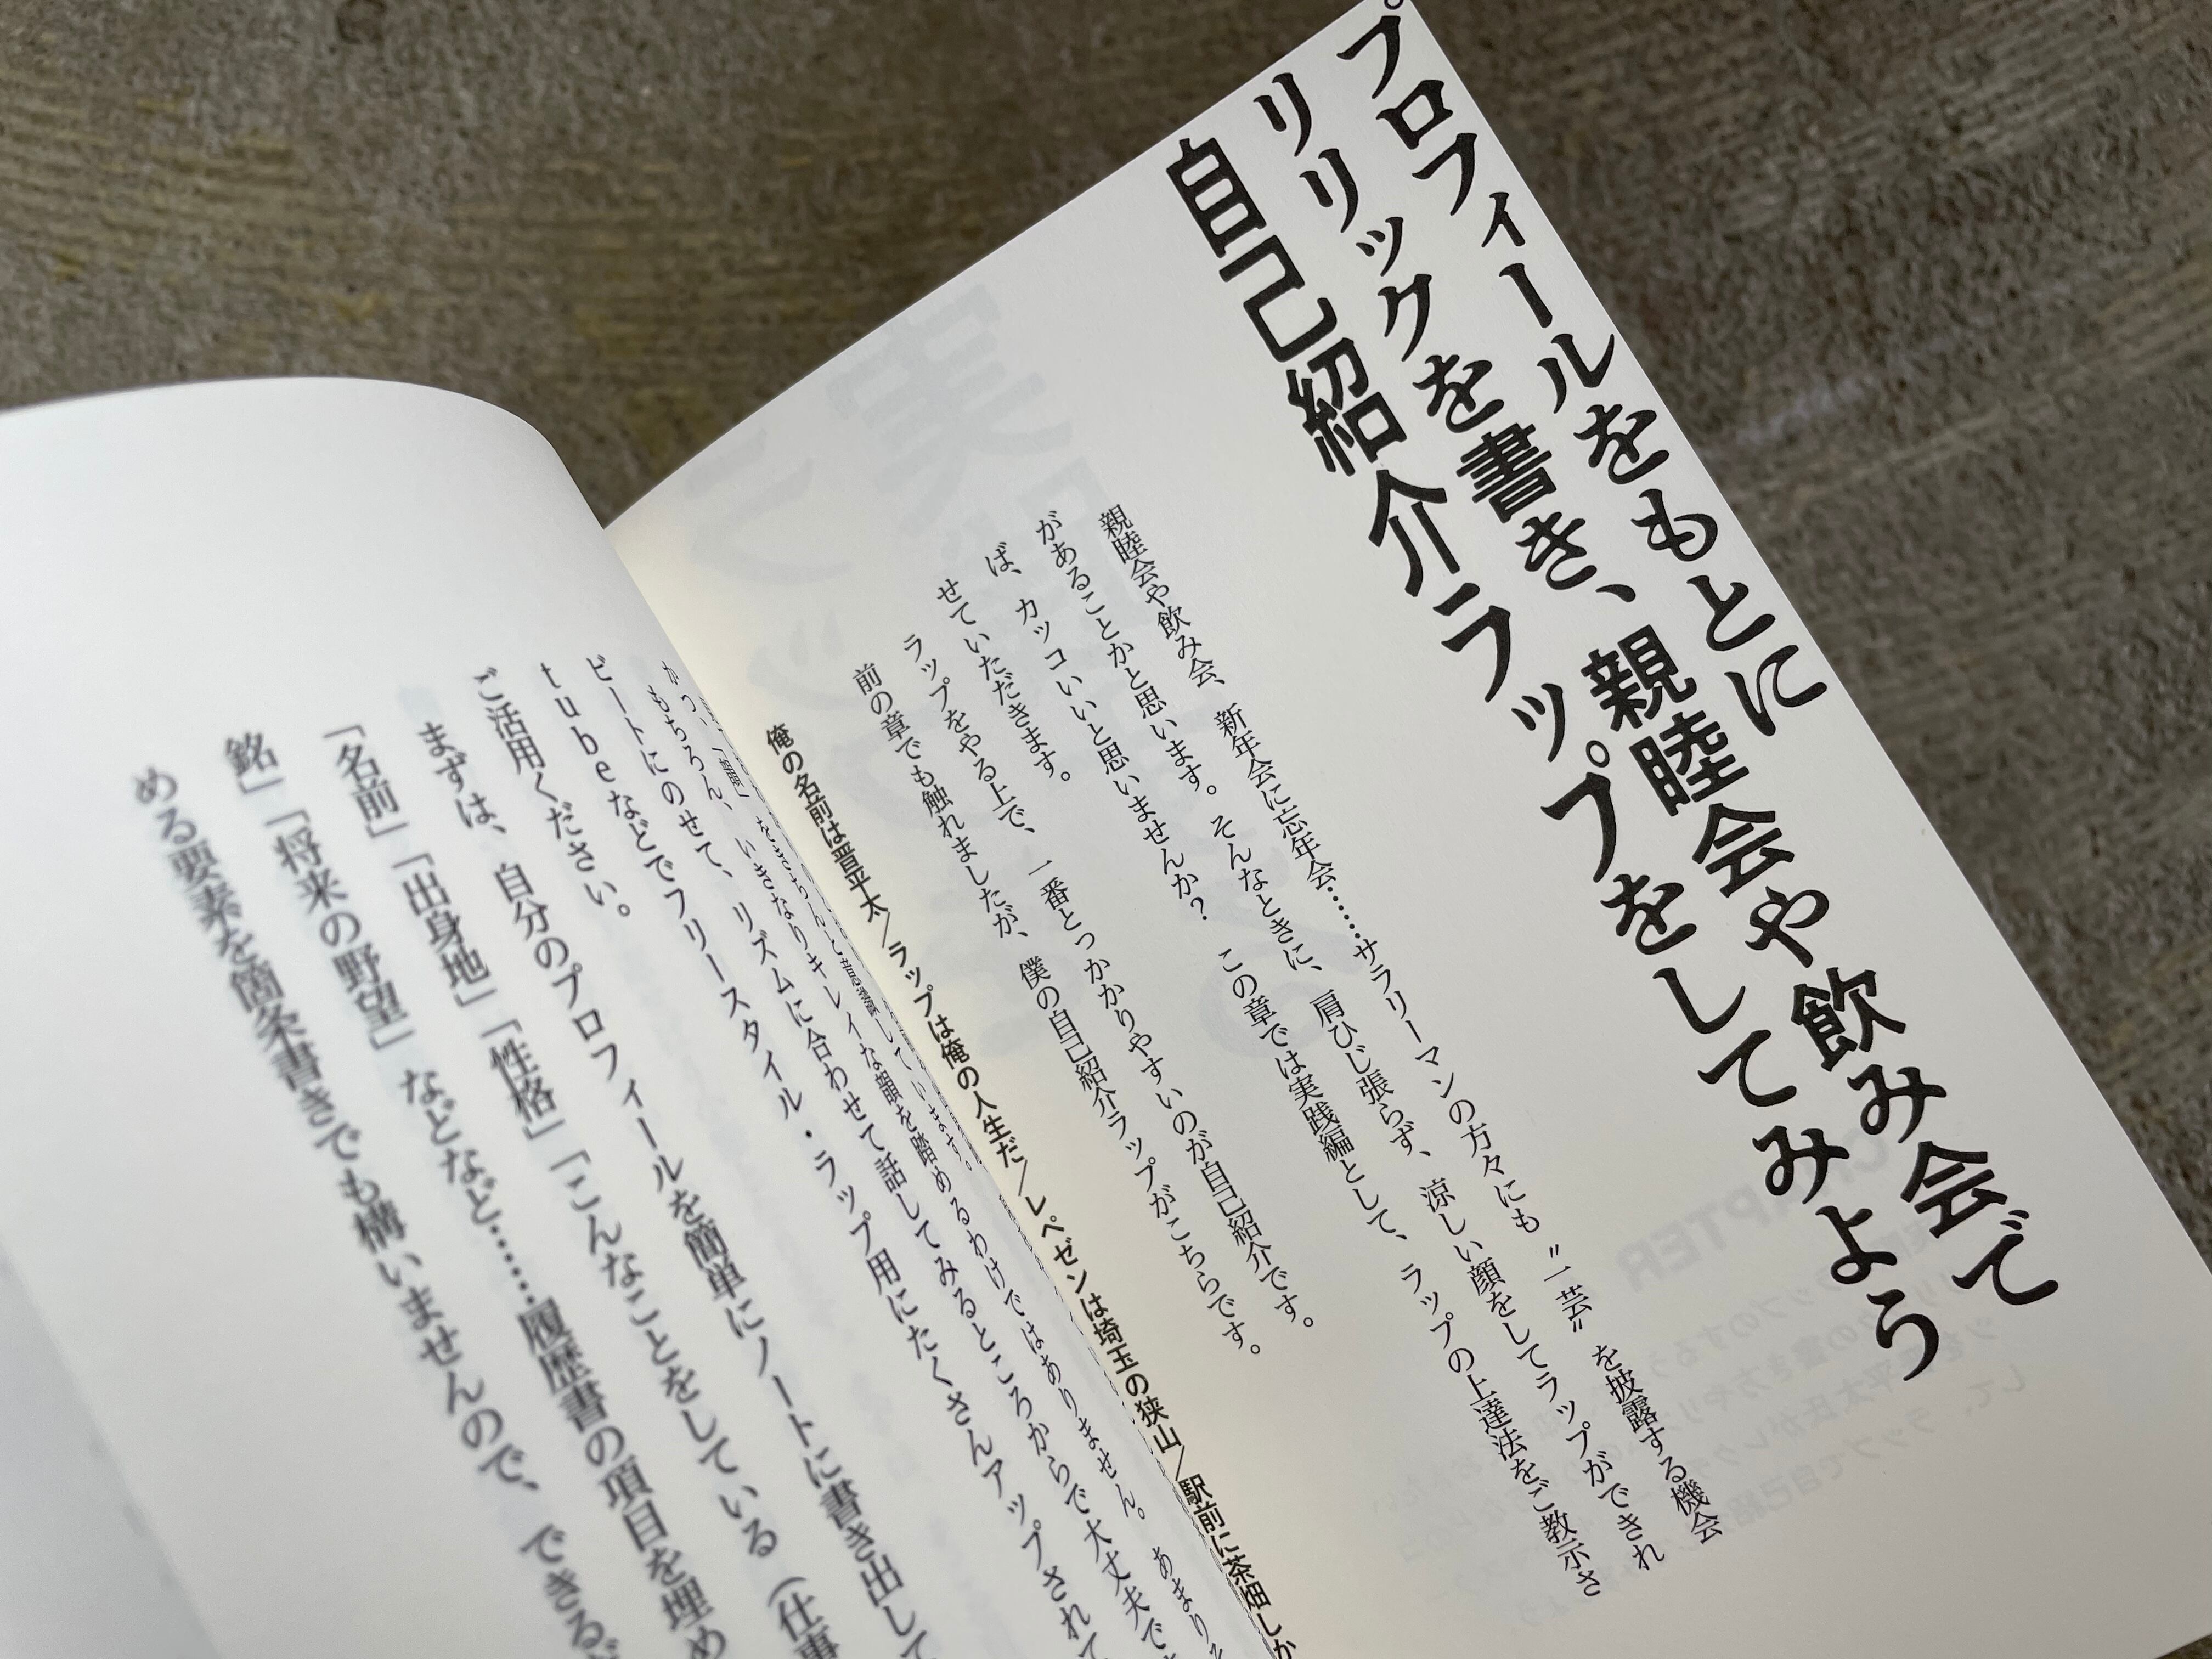 プロフィールをもとに
リリックを書き、親睦会や飲み会で
自己紹介ラップをしてみよう
親睦会や飲み会、新年会に忘年会……サラリーマンの方々にも〝一芸〟を披露する機会
があることかと思います。そんなときに、肩ひじ張らず、涼しい顔をしてラップができれ
ば、カッコいいと思いませんか？　この章では実践編として、ラップの上達法をご教示さ
せていただきます。
ラップをやる上で、一番とっかかりやすいのが自己紹介です。
前の章でも触れましたが、僕の自己紹介ラップがこちらです。
俺の名前は晋平太／ラップは俺の人生だ／レペゼンは埼玉の狭山／駅前に茶畑しか
をきちんと意識しています。
もちろん、いきなりキレイな韻を踏めるわけではありません。あまり
ビートにのせて、リズムに合わせて話してみるところからで大丈夫で
tubeなどでフリースタイル・ラップ用にたくさんアップされて
ご活用ください。
まずは、自分のプロフィールを簡単にノートに書き出して
「名前」「出身地」「性格」「こんなことをしている（仕事
銘」「将来の野望」などなど……履歴書の項目を埋め
める要素を箇条書きでも構いませんので、できるだ